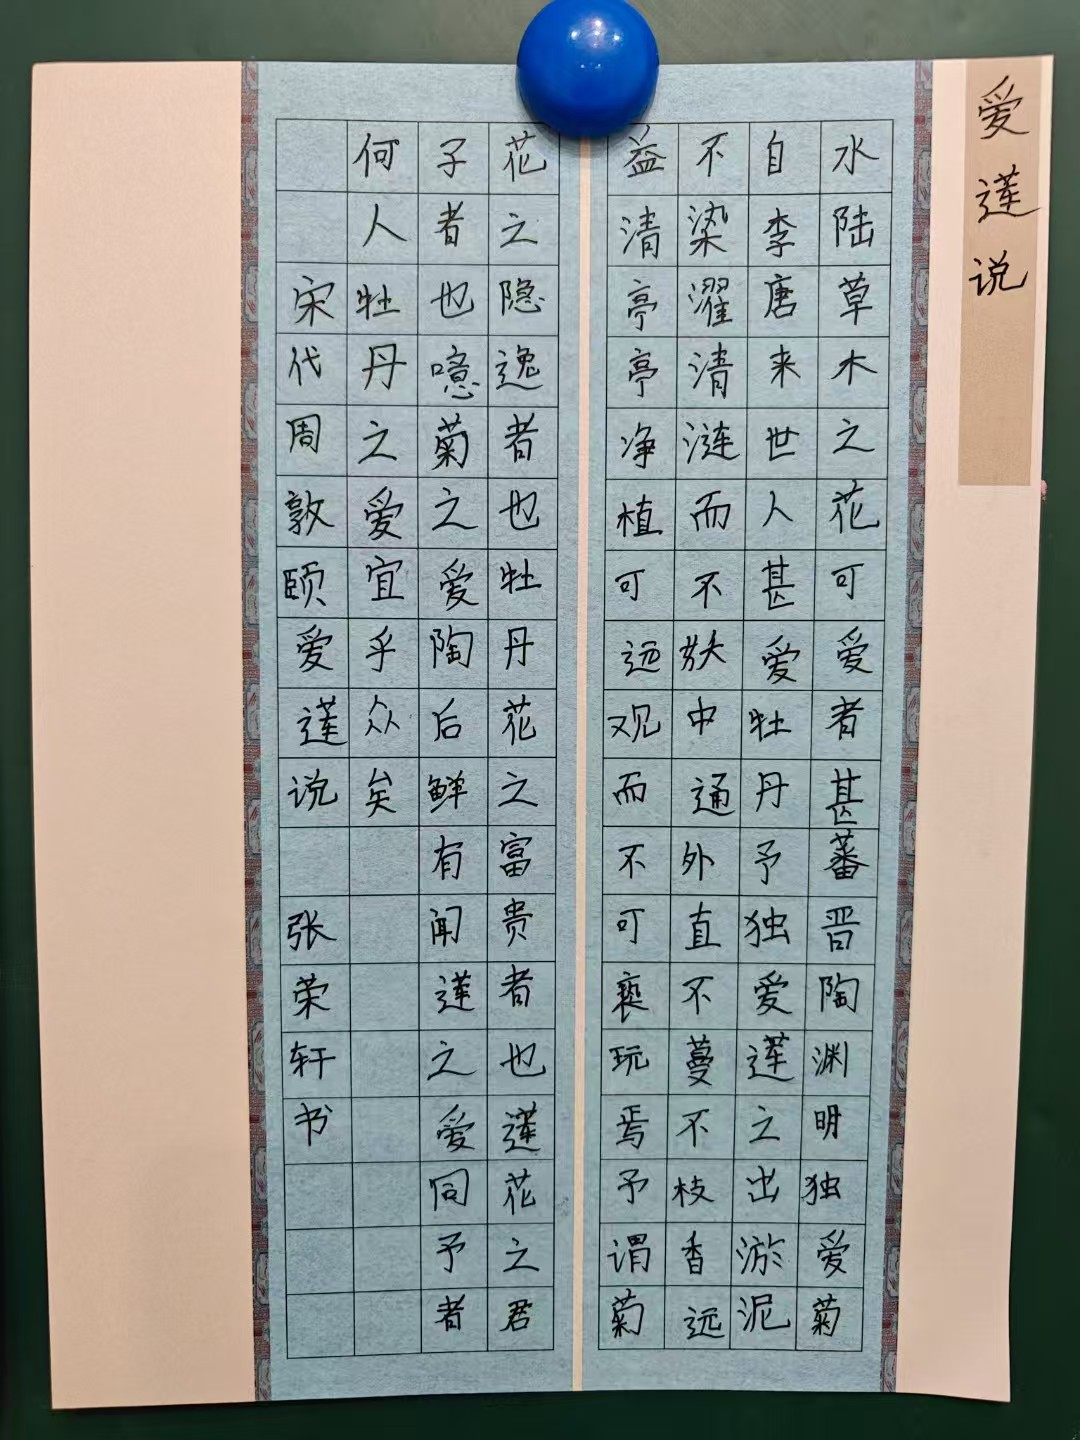 爱莲说
水陆草木之花可爱者甚蕃晋陶渊明独爱菊
自李唐来世人甚爱牡丹予独爱莲之出淤泥
不染濯清涟而不妖中通外直不蔓不枝香远
益清亭亭净植可远观而不可亵玩焉予谓菊
花之隐逸者也牡丹花之富贵者也莲花之君
子者也噫菊之爱陶后鲜有闻莲之爱同予者
何人牡丹之爱宜乎众矣
宋代周敦颐爱莲说 张荣轩书